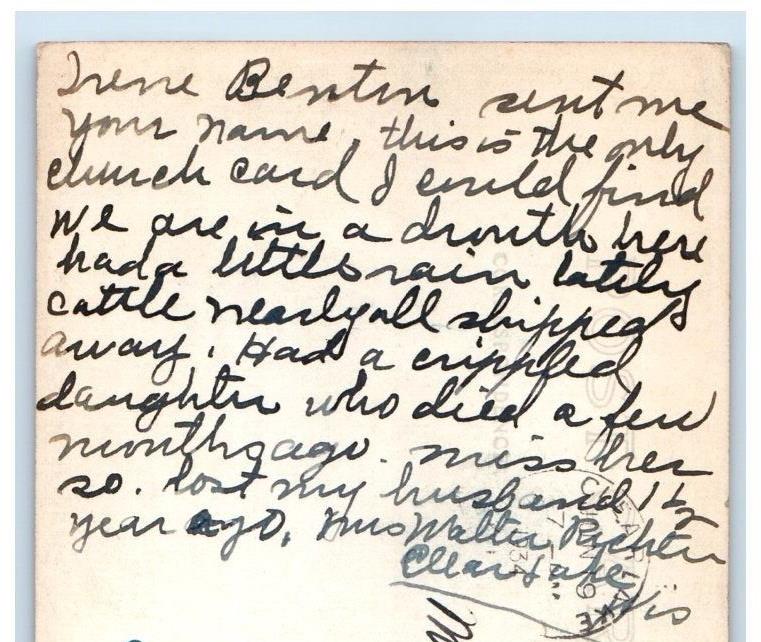 Irene Benton sent me
your name, this is the only
church card I could find
We are in a drouth here
had a little rain lately
cattle nearly all shipped
away. Had a crippled
daughter who died a few
months ago. miss her
so. lost my husband 1 1/2
year ago, Mrs Walter Richter
Clear Lake
Wis
CLEAR LAKE
1934